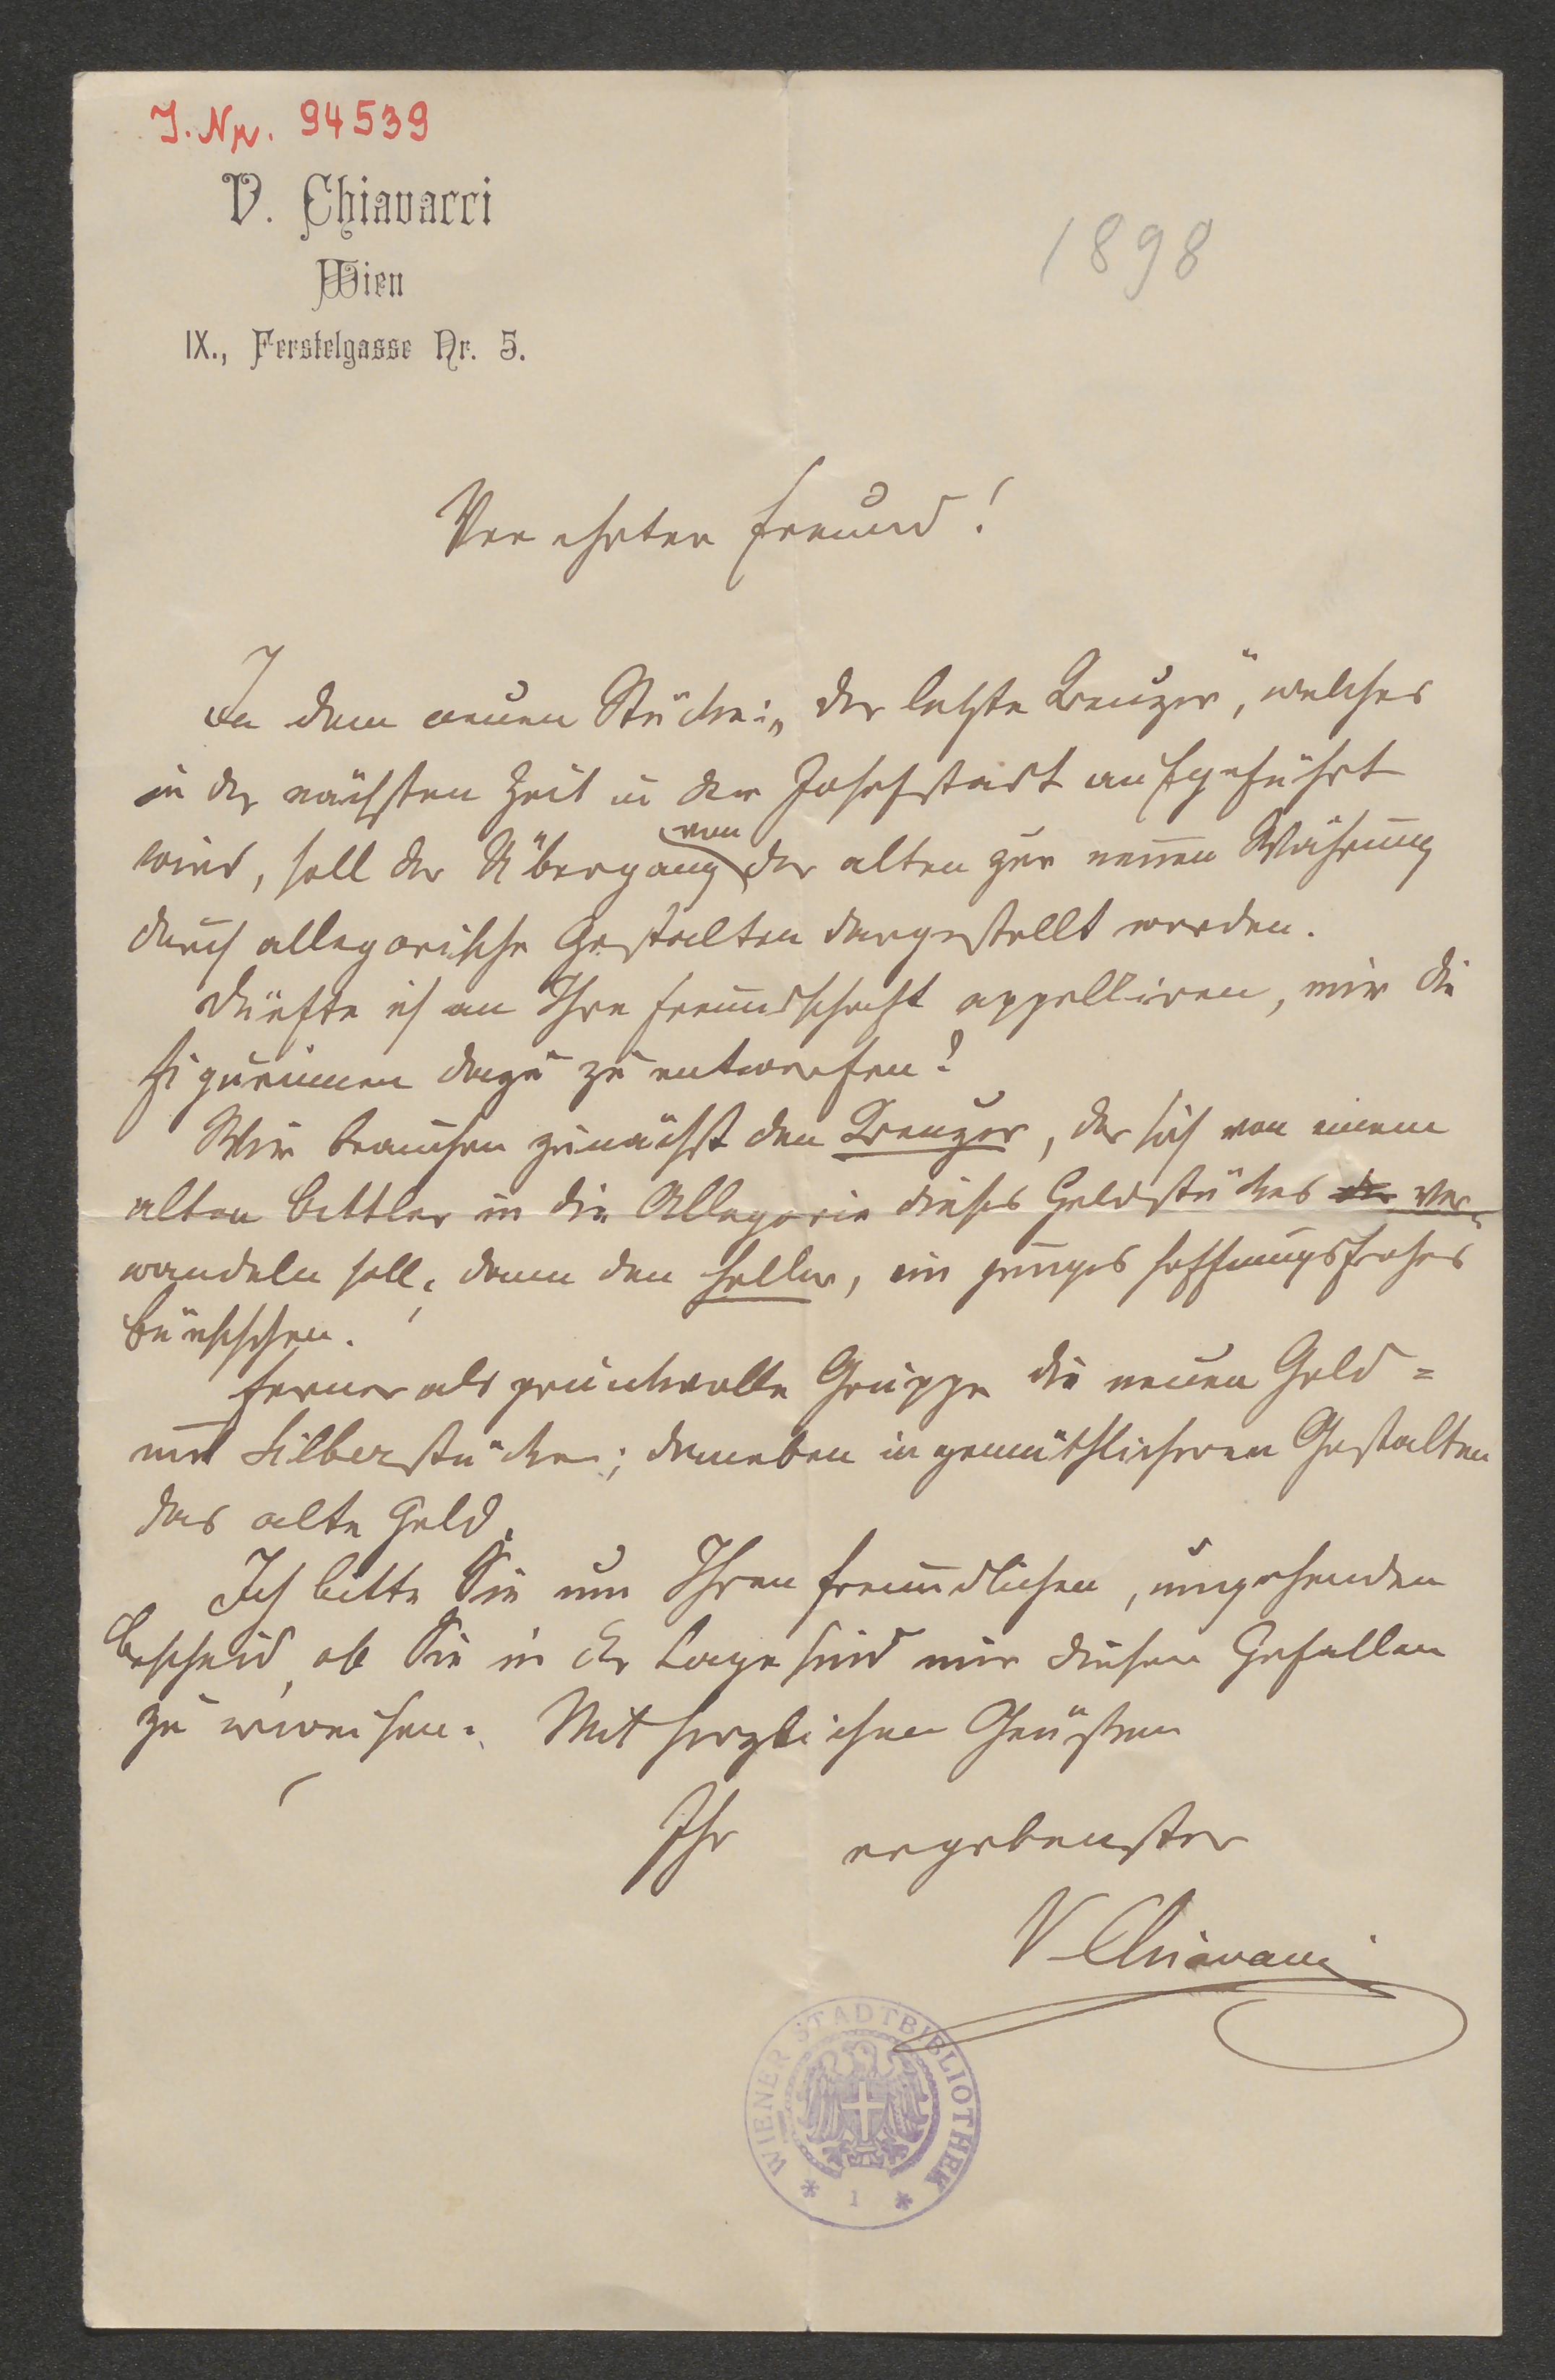 J. Nr. 94539
V. Chiavacci
Wien
IX., Ferstelgasse Nr. 5.
1898
Verehrter Freund!
In dem neuen Stücke: „Der letzte Kreuzer", welches
in der nächsten Zeit in der Josefstadt aufgeführt
wird, soll der Übergang von der alten zur neuen Währung
durch allegorische Gestalten dargestellt werden.
Dürfte ich an Ihre Freundschaft appelliren, mir die
Figurinnen dazu zu entwerfen?
Wir brauchen zunächst den Kreuzer, der sich von einem
alten Bettler in die Allegorie dieses Geldstückes der ver-
wandeln soll, dann den Heller, ein junges hoffnungsfrohes
Bürschchen.
Ferner als prunkvolle Gruppe die neuen Gold=
und Silberstücke; daneben in gemüthlicheren Gestalten
das alte Geld.
Ich bitte Sie um Ihren freundlichen, umgehenden
Bescheid, ob Sie in der Lage sind mir diesen Gefallen
zu erweisen. Mit herzlichen Grüßen
Ihr ergebenster
V Chiavacci
WIENER STADTBIBLIOTHEK
* 1 *